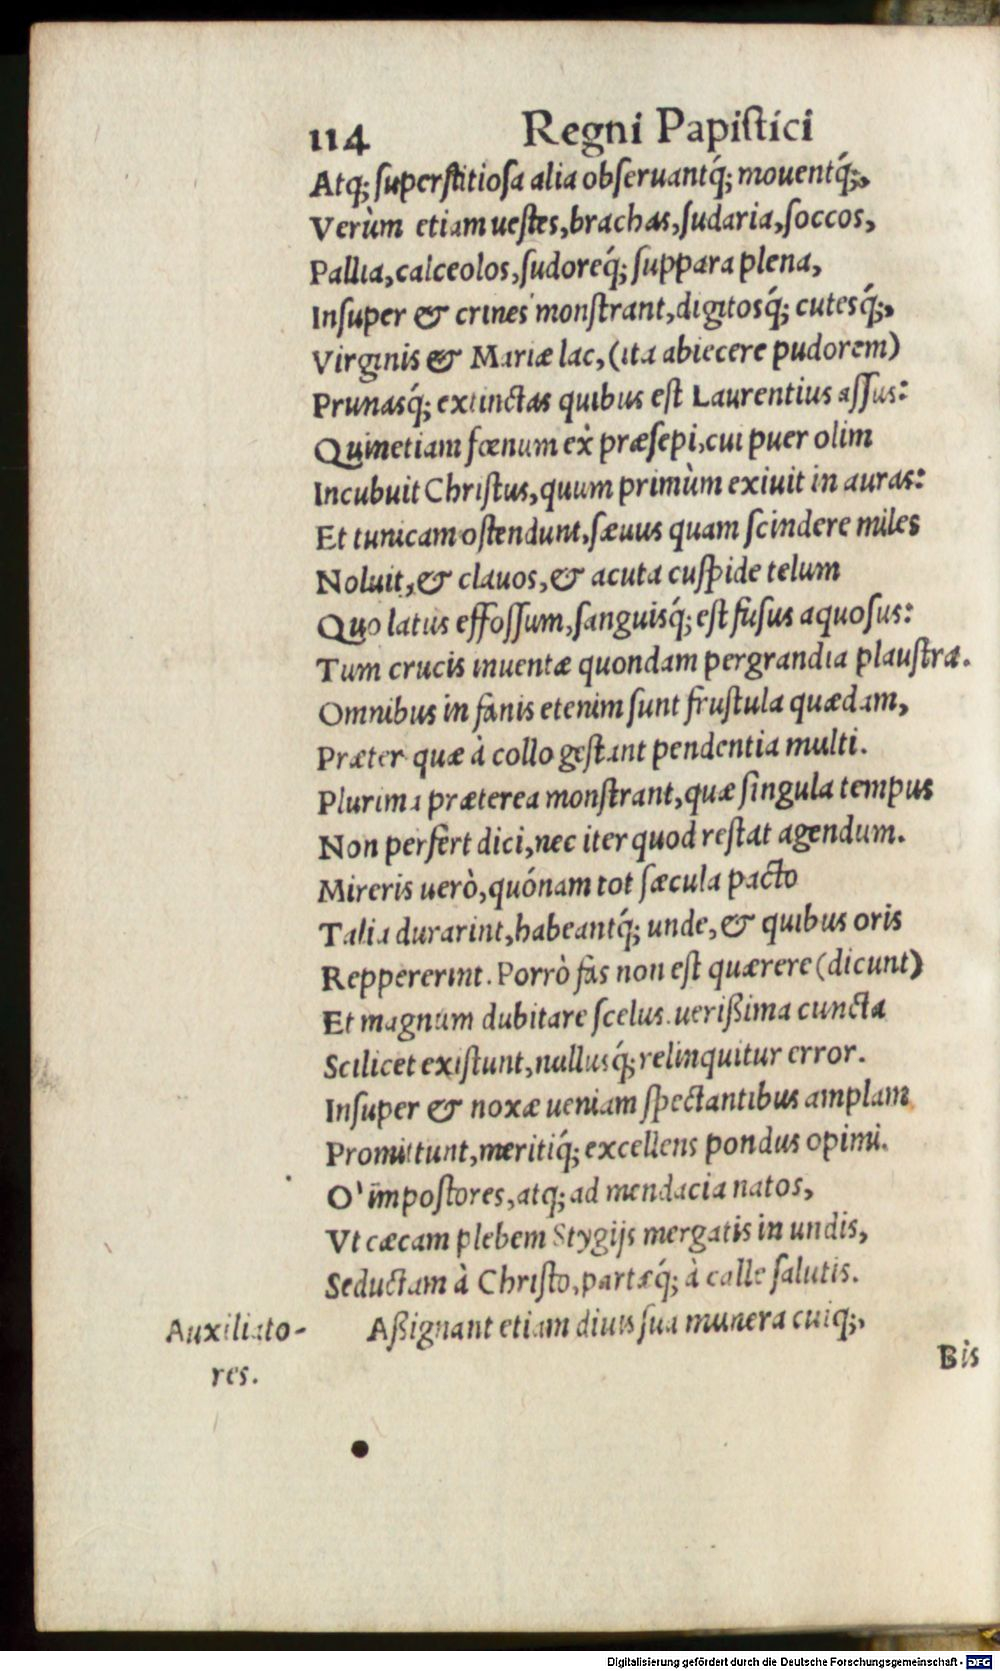 114 Regni Papiſtici
Atq; ſuperſtitioſa alia obſeruantq́; mouentq́;,
Verùm etiam ueſtes, brachas, ſudaria, ſoccos,
Pallia, calceolos, ſudoreq́; ſuppara plena,
Inſuper & crines monſtrant, digitosq́; cutesq́;,
Virginis & Mariæ lac, (ita abiecere pudorem)
Prunasq́; extinctas quibus eſt Laurentius aſſus:
Quinetiam fœnum ex præſepi, cui puer olim
Incubuit Chriſtus, quum primùm exiuit in auras:
Et tunicam oſtendunt, ſæuus quam ſcindere miles
Noluit, & clauos, & acuta cuſpide telum
Quo latus effoſſum, ſanguisq́; eſt fuſus aquoſus:
Tum crucis inuentæ quondam pergrandia plauſtra.
Omnibus in fanis etenim ſunt fruſtula quædam,
Præter quæ à collo geſtant pendentia multi.
Plurima præterea monſtrant, quæ ſingula tempus
Non perfert dici, nec iter quod reſtat agendum.
Mireris uerò, quónam tot ſæcula pacto
Talia durarint, habeantq́; unde, & quibus oris
Reppererint. Porrò fas non eſt quærere (dicunt)
Et magnum dubitare ſcelus. uerißima cuncta
Scilicet exiſtunt, nullusq́; relinquitur error.
Inſuper & noxæ ueniam ſpectantibus amplam
Promittunt, meritiq́; excellens pondus opimi.
O' impoſtores, atq; ad mendacia natos,
Vt cæcam plebem Stygijs mergatis in undis,
Seductam à Chriſto, partæq́; à calle ſalutis.
Auxiliato-
res.
Aßignant etiam diuis ſua munera cuiq;,
Bis
Digitalisierung gefördert durch die Deutsche Forschungsgemeinschaft - DFG